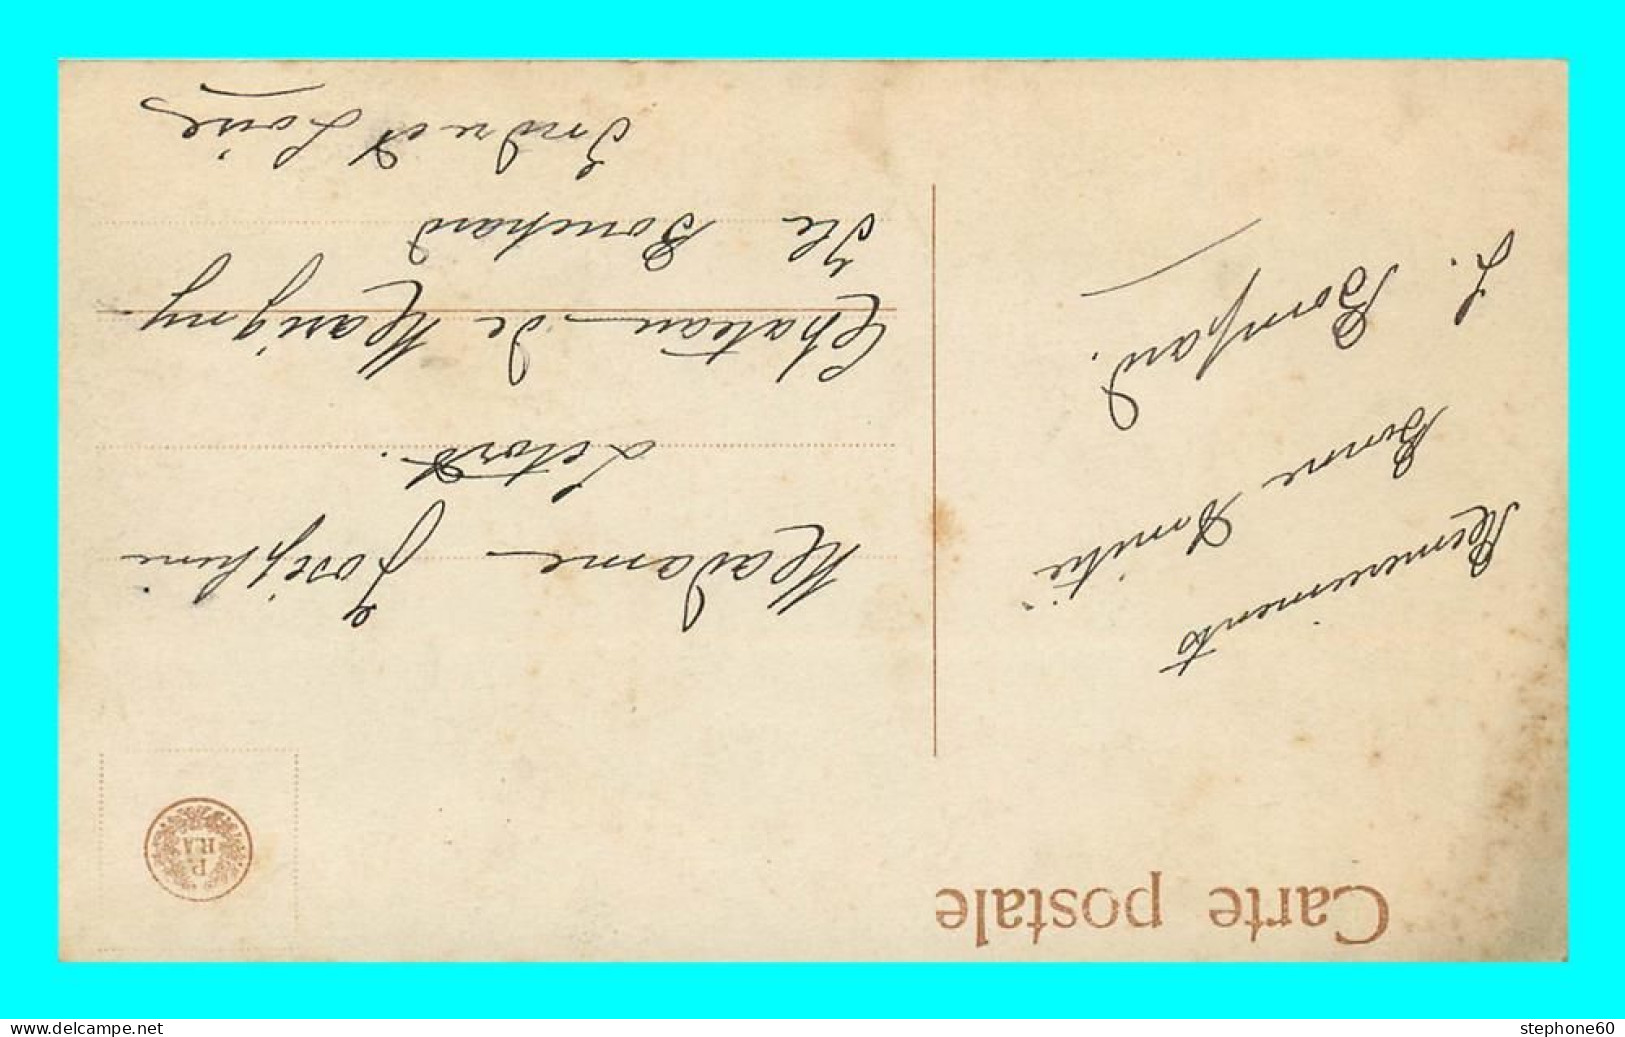 Carte postale
P.
RA
Remerciements
Bonne Amitié
L. Bompard.
Madame Joséphine
Letort.
Château de Marigny
Ile Bouchard
Indre et Loire
www.delcampe.net
stephone60